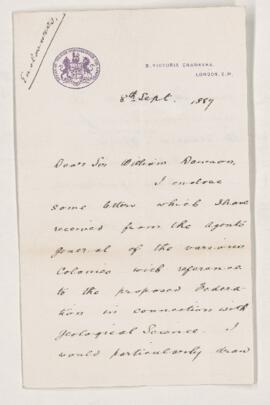 Enclosures.
9, VICTORIA CHAMBERS,
LONDON, S.W.
8th Sept. 1887
Dear Sir William Dawson,
I enclose
some letters which I have
received from the Agents
general of the various
Colonies with reference
to the proposed Federa-
tion in connection with
Geological Science. I
would particularly draw